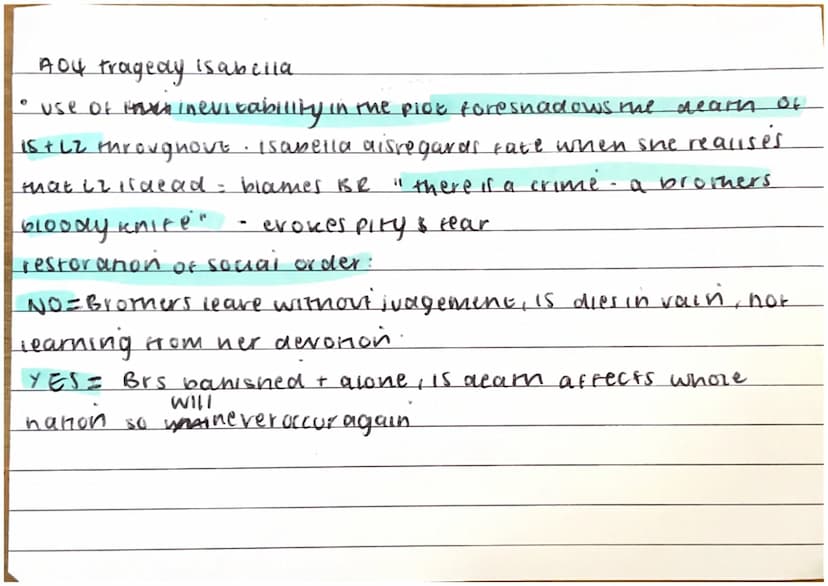 AO4 tragedy isabella
• use of inevitability in the plot foreshadows the death of
IS + LZ throughout. Isabella disregards fate when she realises
that LZ is dead = blames BR "there is a crime - a brothers
bloody knife" - evokes pity & fear
restoration of social order:
NO = Brothers leave without judgement, IS dies in vain, not
learning from her devotion.
YES = Brs banished + alone, IS death affects whole
will
nation so never occur again